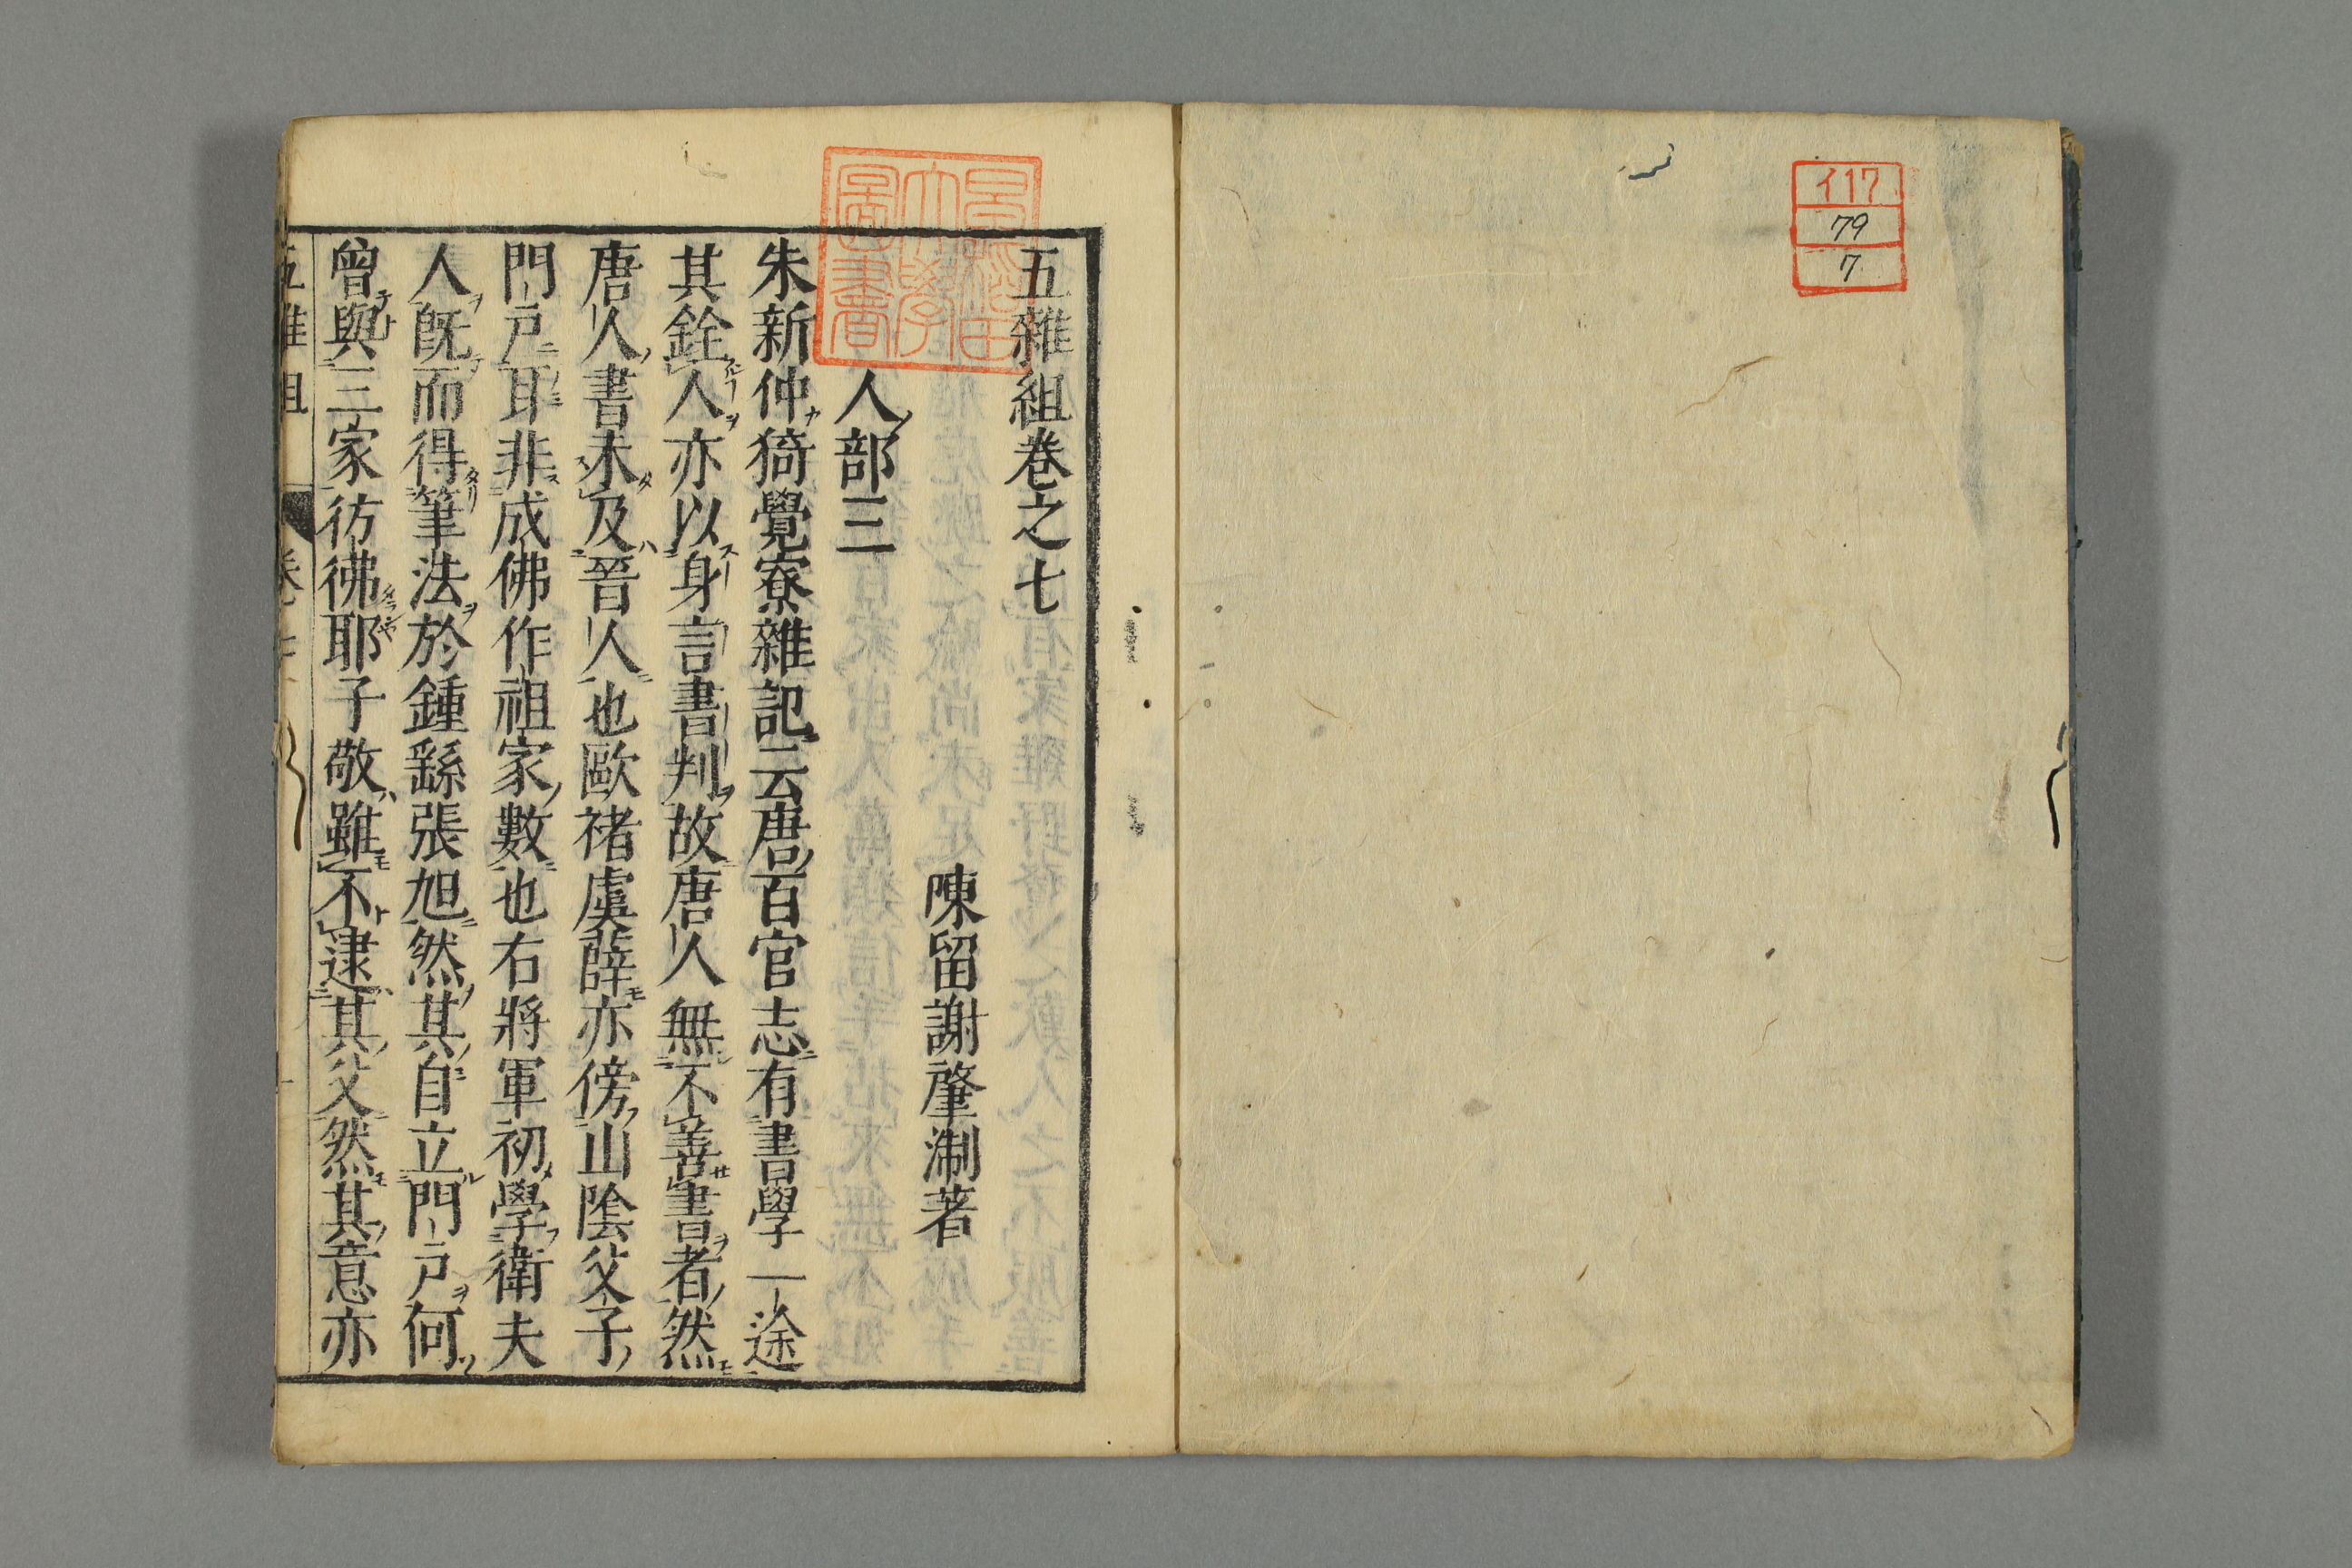 イ17
79
7
五雜組卷之七
陳留謝肇淛著
人部三
朱新仲猗覺寮雜記云唐百官志有書學一途
其銓人亦以身言書判故唐人無不善書者然
唐人書未及晉人也歐禇虞薛亦傍山陰父子
門戸耳非成佛作祖家數也右將軍初學衛夫
人旣而得筆法於鍾繇張旭然其自立門戸何
曾與三家彷彿耶子敬雖不逮其父然其意亦
五雜組 卷七 一
早稻田大學圖書